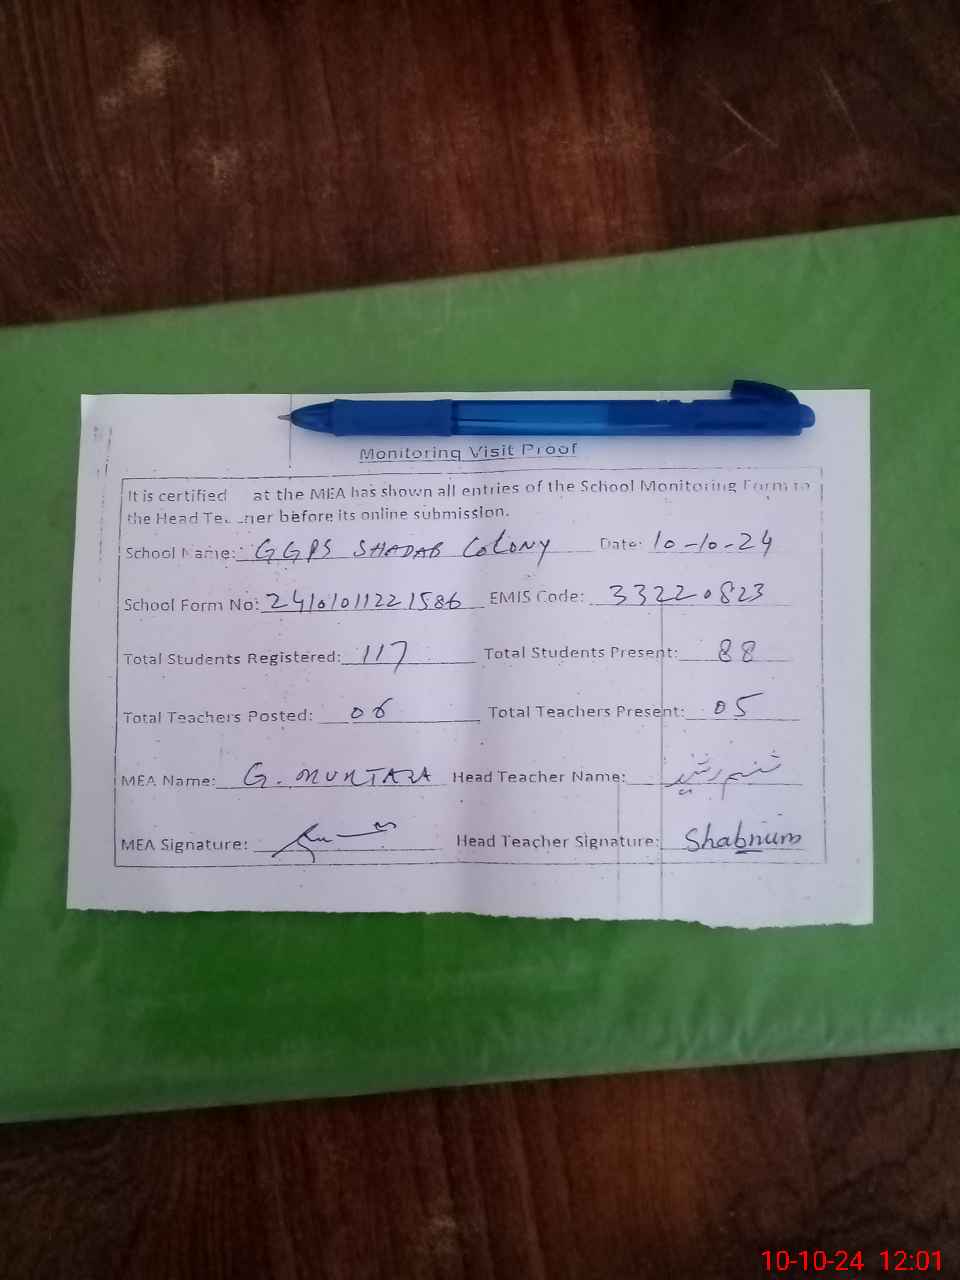 Monitoring Visit Proof
It is certified at the MEA has shown all entries of the School Monitoring Form to
the Head Te ner before its online submission.
School Name: GGPS SHADAB COLONY Date: 10-10-24
School Form No: 24101011221586 EMIS Code: 33220823
Total Students Registered: 117 Total Students Present: 88
Total Teachers Posted: 06 Total Teachers Present: 05
MEA Name: G. MURTAZA Head Teacher Name: شبنم رشید
MEA Signature: Head Teacher Signature: Shabnum
10-10-24 12:01